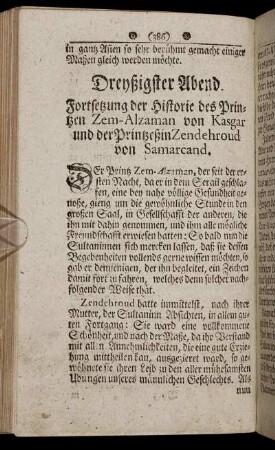 (386)
in gantz Asien so sehr berühmt gemacht einiger
Maßen gleich werden möchte.
Dreyßigster Abend.
Fortsetzung der Historie des Prin-
tzen Zem-Alzaman von Kasgar
und der Printzeßin Zendehroud
von Samarcand,
DEr Printz Zem-Alzaman, der seit der er-
sten Nacht, da er in dem Serail geschla-
fen, eine bey nahe völlige Gesundheit ge-
noße, gieng um die gewöhnliche Stunde in den
großen Saal, in Gesellschafft der anderen, die
ihn mit dahin genommen, und ihm alle mögliche
Freundschafft erwiesen hatten: So bald nun die
Sultaninnen sich mercken lassen, daß sie dessen
Begebenheiten vollends gerne wissen möchten, so
gab er demjenigen, der ihn begleitet, ein Zeichen
damit fort zu fahren, welches denn solcher nach-
folgender Weise thät.
Zendehroud hatte inmittelst, nach ihrer
Mutter, der Sultaninn Absichten, in allem gu-
ten Fortgang: Sie ward eine vollkommene
Schönheit, und nach der Maße, da ihr Verstand
mit allen Annehmlichkeiten, die eine gute Erzie-
hung mittheilen kan, ausgezieret ward, so ge-
wöhnete sie ihren Leib zu den aller mühesamsten
Ubungen unseres männlichen Geschlechts. Als